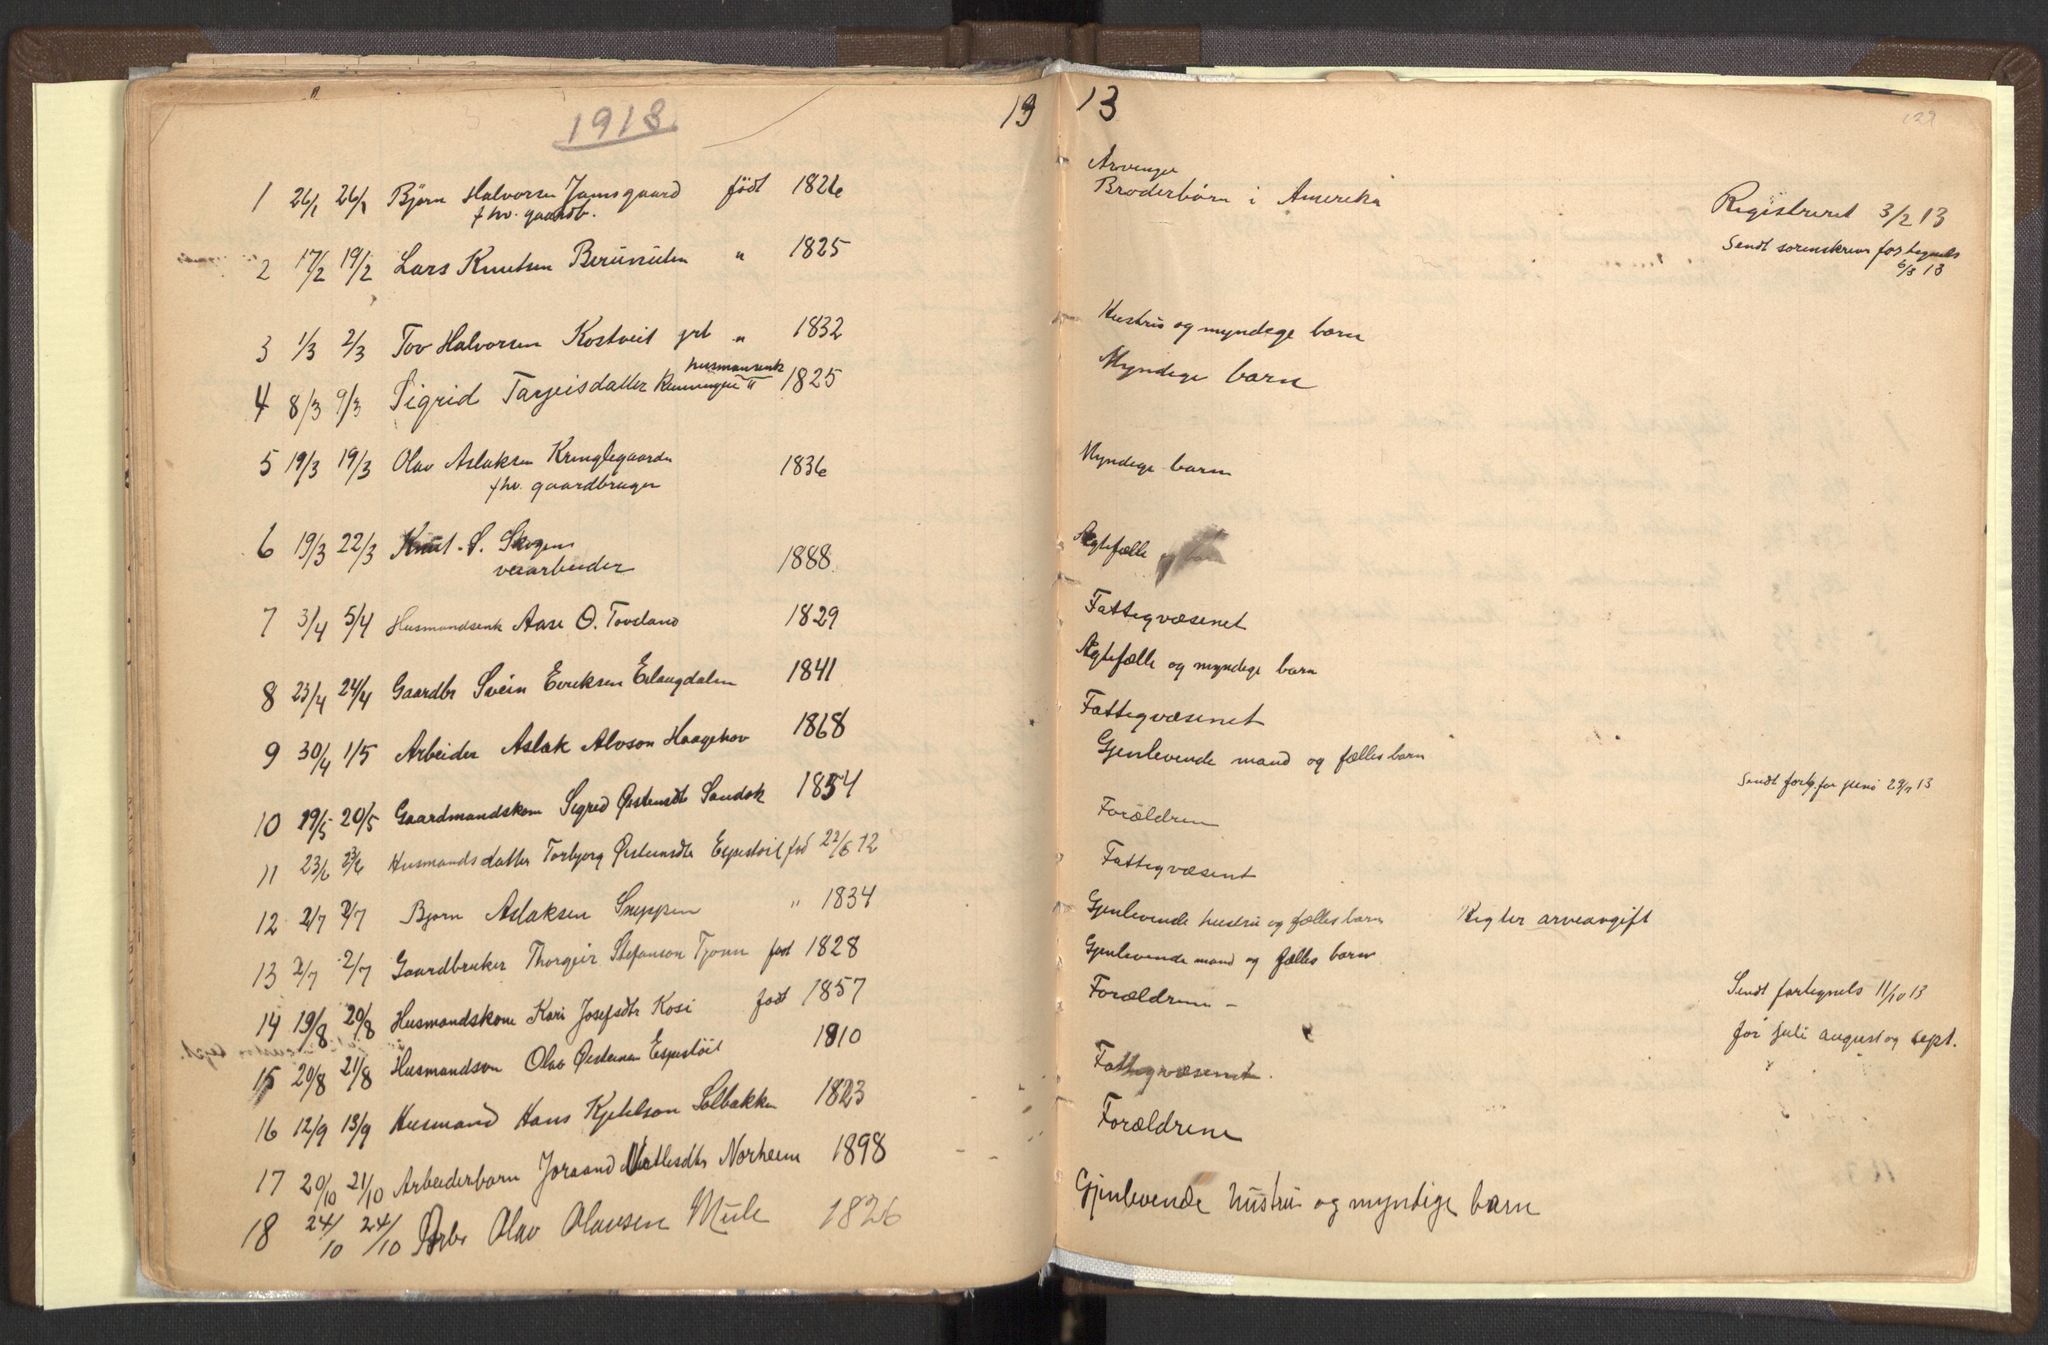 1913
19
1 26/1 26/1 Bjørn Halvorsen Jamsgaard født 1826
fhv. gaardb.
2 17/2 19/2 Lars Knutsen " 1825
3 1/3 2/3 Tov Halvorsen Kostveit " 1832
husmansenk
4 8/3 9/3 Sigrid Tarjeisdatter " 1825
5 19/3 19/3 Olav Aslaksen Kringlegaarden 1836
fhv. gaardbruger
6 19/3 22/3 Knut S. Skogen
veiarbeider 1888
7 3/4 5/4 Husmandsenk Aase O. Tovsland 1829
8 23/4 24/4 Gaardbr Svein Eveksen Eilaugdalen 1841
9 30/4 1/5 Arbeider Aslak Alvson Haagehov 1868
10 19/5 20/5 Gaardmandskone Sigrid Øistensdtr Sandok 1854
11 23/6 23/6 Husmandsdatter Torbjorg Øisteinsdtr Espestøil fød 22/6 12
12 2/7 2/7 Bjørn Aslaksen Sneppen " 1834
13 2/7 2/7 Gaardbruker Thorgeir Stefanson Tjonn født 1828
14 19/8 20/8 Husmandskone Kari Josefsdtr Kosi født 1857
15 20/8 21/8 Husmandson Olav Øisteinsen Espestøil 1810
16 12/9 13/9 Husmand Hans Kjetelson Solbakken 1823
17 20/10 21/10 Arbeiderbarn Joraand Nottlesdtr Norheim 1898
18 24/10 24/10 Arbr Olav Olavsen Mule 1826
13
Arvinger
Broderbørn i Amerika
Registreret 3/2 13
Sendt sorenskrive fortegnels
6/3 13
Hustru og myndege barn
Myndege barn
Myndege barn
Ægtefælle
Fattegvæsenet
Ægtefælle og myndege barn
Fattegvæsenet
Gjenlevende mand og fælles barn
Sendt fortg. for juni 29/7 13
Forældren
Fattegvæsent
Gjenlevende hustru og fælles barn Vegter arveavgift
Gjenlevende mand og fælles barn
Forældrene -
Sendt fortegnels 11/10 13
for juli august og sept.
Fattegvæsenet.
Forældrene
Gjenlevende hustru og myndige børn